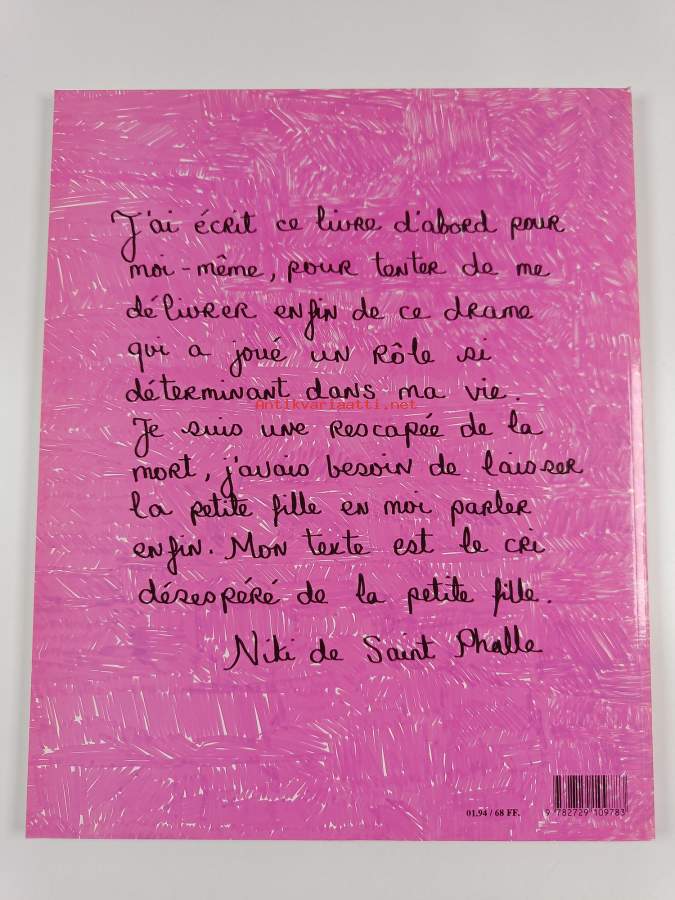 J'ai écrit ce livre d'abord pour
moi-même, pour tenter de me
délivrer enfin de ce drame
qui a joué un rôle si
déterminant dans ma vie.
Antikvariaatti.net
Je suis une rescapée de la
mort, j'avais besoin de laisser
la petite fille en moi parler
enfin. Mon texte est le cri
désespéré de la petite fille.
Niki de Saint Phalle
01.94 / 68 FF.
9 782729 109783